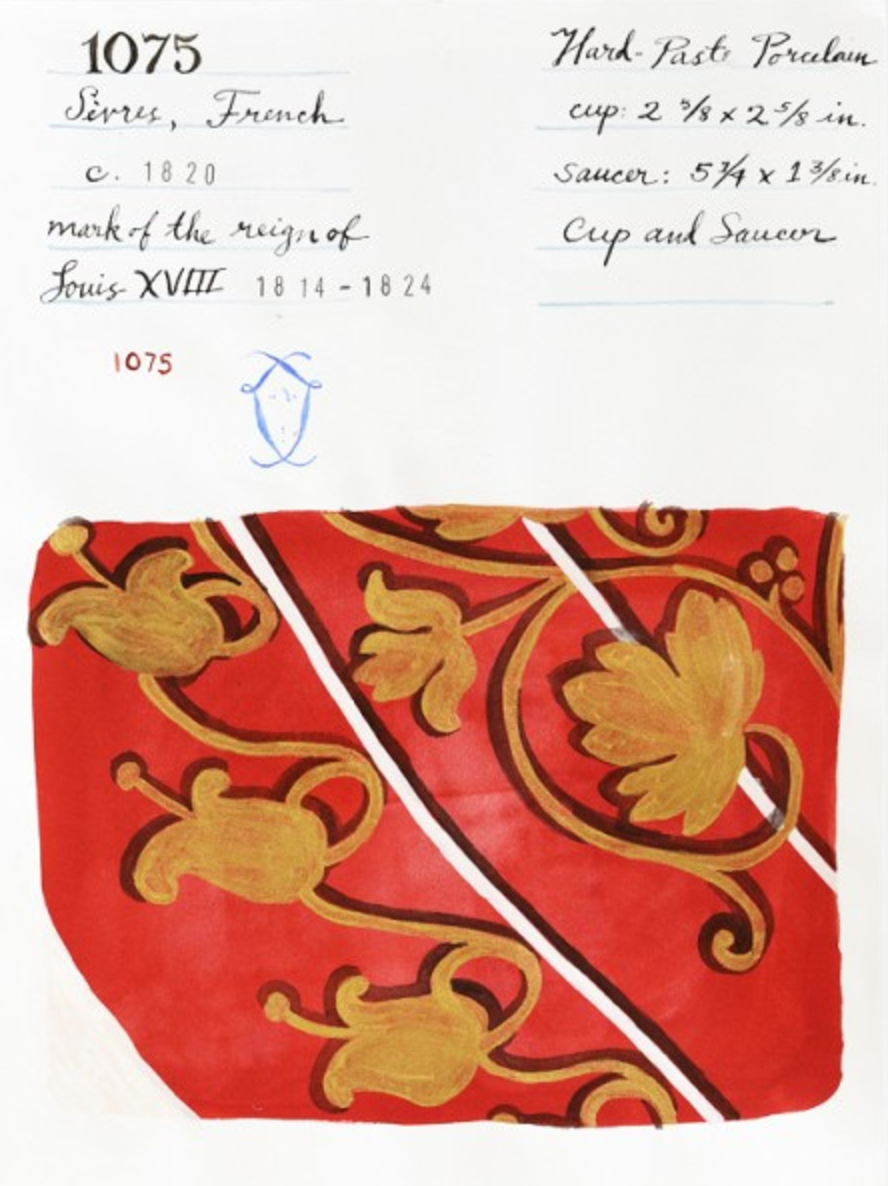 1075
Sèvres, French
c. 1820
mark of the reign of
Louis XVIII 1814-1824
1075
Hard-Paste Porcelain
cup: 2 5/8 x 2 5/8 in.
saucer: 5 3/4 x 1 3/8 in.
Cup and Saucer